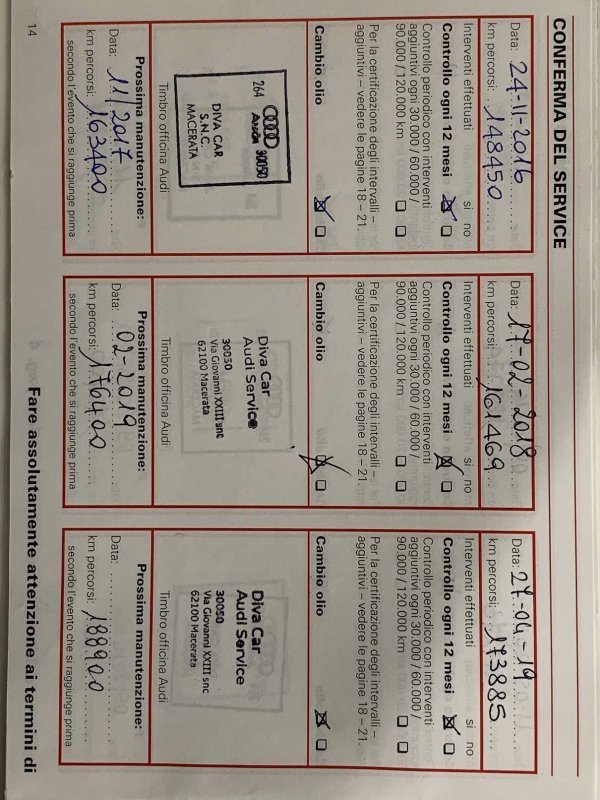 CONFERMA DEL SERVICE
Data: 24-11-2016
km percorsi: 148450
Interventi effettuati si no
Controllo ogni 12 mesi ☒ ☐
Controllo periodico con interventi
aggiuntivi ogni 30.000 / 60.000 /
90.000 / 120.000 km ☐ ☐
Per la certificazione degli intervalli –
aggiuntivi – vedere le pagine 18 – 21.
Cambio olio ☒ ☐
264
30050
DIVA CAR
S.N.C.
MACERATA
Timbro officina Audi
Prossima manutenzione:
Data: 11/2017
km percorsi: 163400
secondo l'evento che si raggiunge prima
Data: 17-02-2018
km percorsi: 161469
Interventi effettuati si no
Controllo ogni 12 mesi ☒ ☐
Controllo periodico con interventi
aggiuntivi ogni 30.000 / 60.000 /
90.000 / 120.000 km ☐ ☐
Per la certificazione degli intervalli –
aggiuntivi – vedere le pagine 18 – 21.
Cambio olio ☒ ☐
Diva Car
Audi Service
30050
Via Giovanni XXIII snc
62100 Macerata
Timbro officina Audi
Prossima manutenzione:
Data: 02-2019
km percorsi: 176400
secondo l'evento che si raggiunge prima
Data: 27-04-19
km percorsi: 173885
Interventi effettuati si no
Controllo ogni 12 mesi ☒ ☐
Controllo periodico con interventi
aggiuntivi ogni 30.000 / 60.000 /
90.000 / 120.000 km ☐ ☐
Per la certificazione degli intervalli –
aggiuntivi – vedere le pagine 18 – 21.
Cambio olio ☒ ☐
Diva Car
Audi Service
30050
Via Giovanni XXIII snc
62100 Macerata
Timbro officina Audi
Prossima manutenzione:
Data:
km percorsi: 188900
secondo l'evento che si raggiunge prima
Fare assolutamente attenzione ai termini di
14